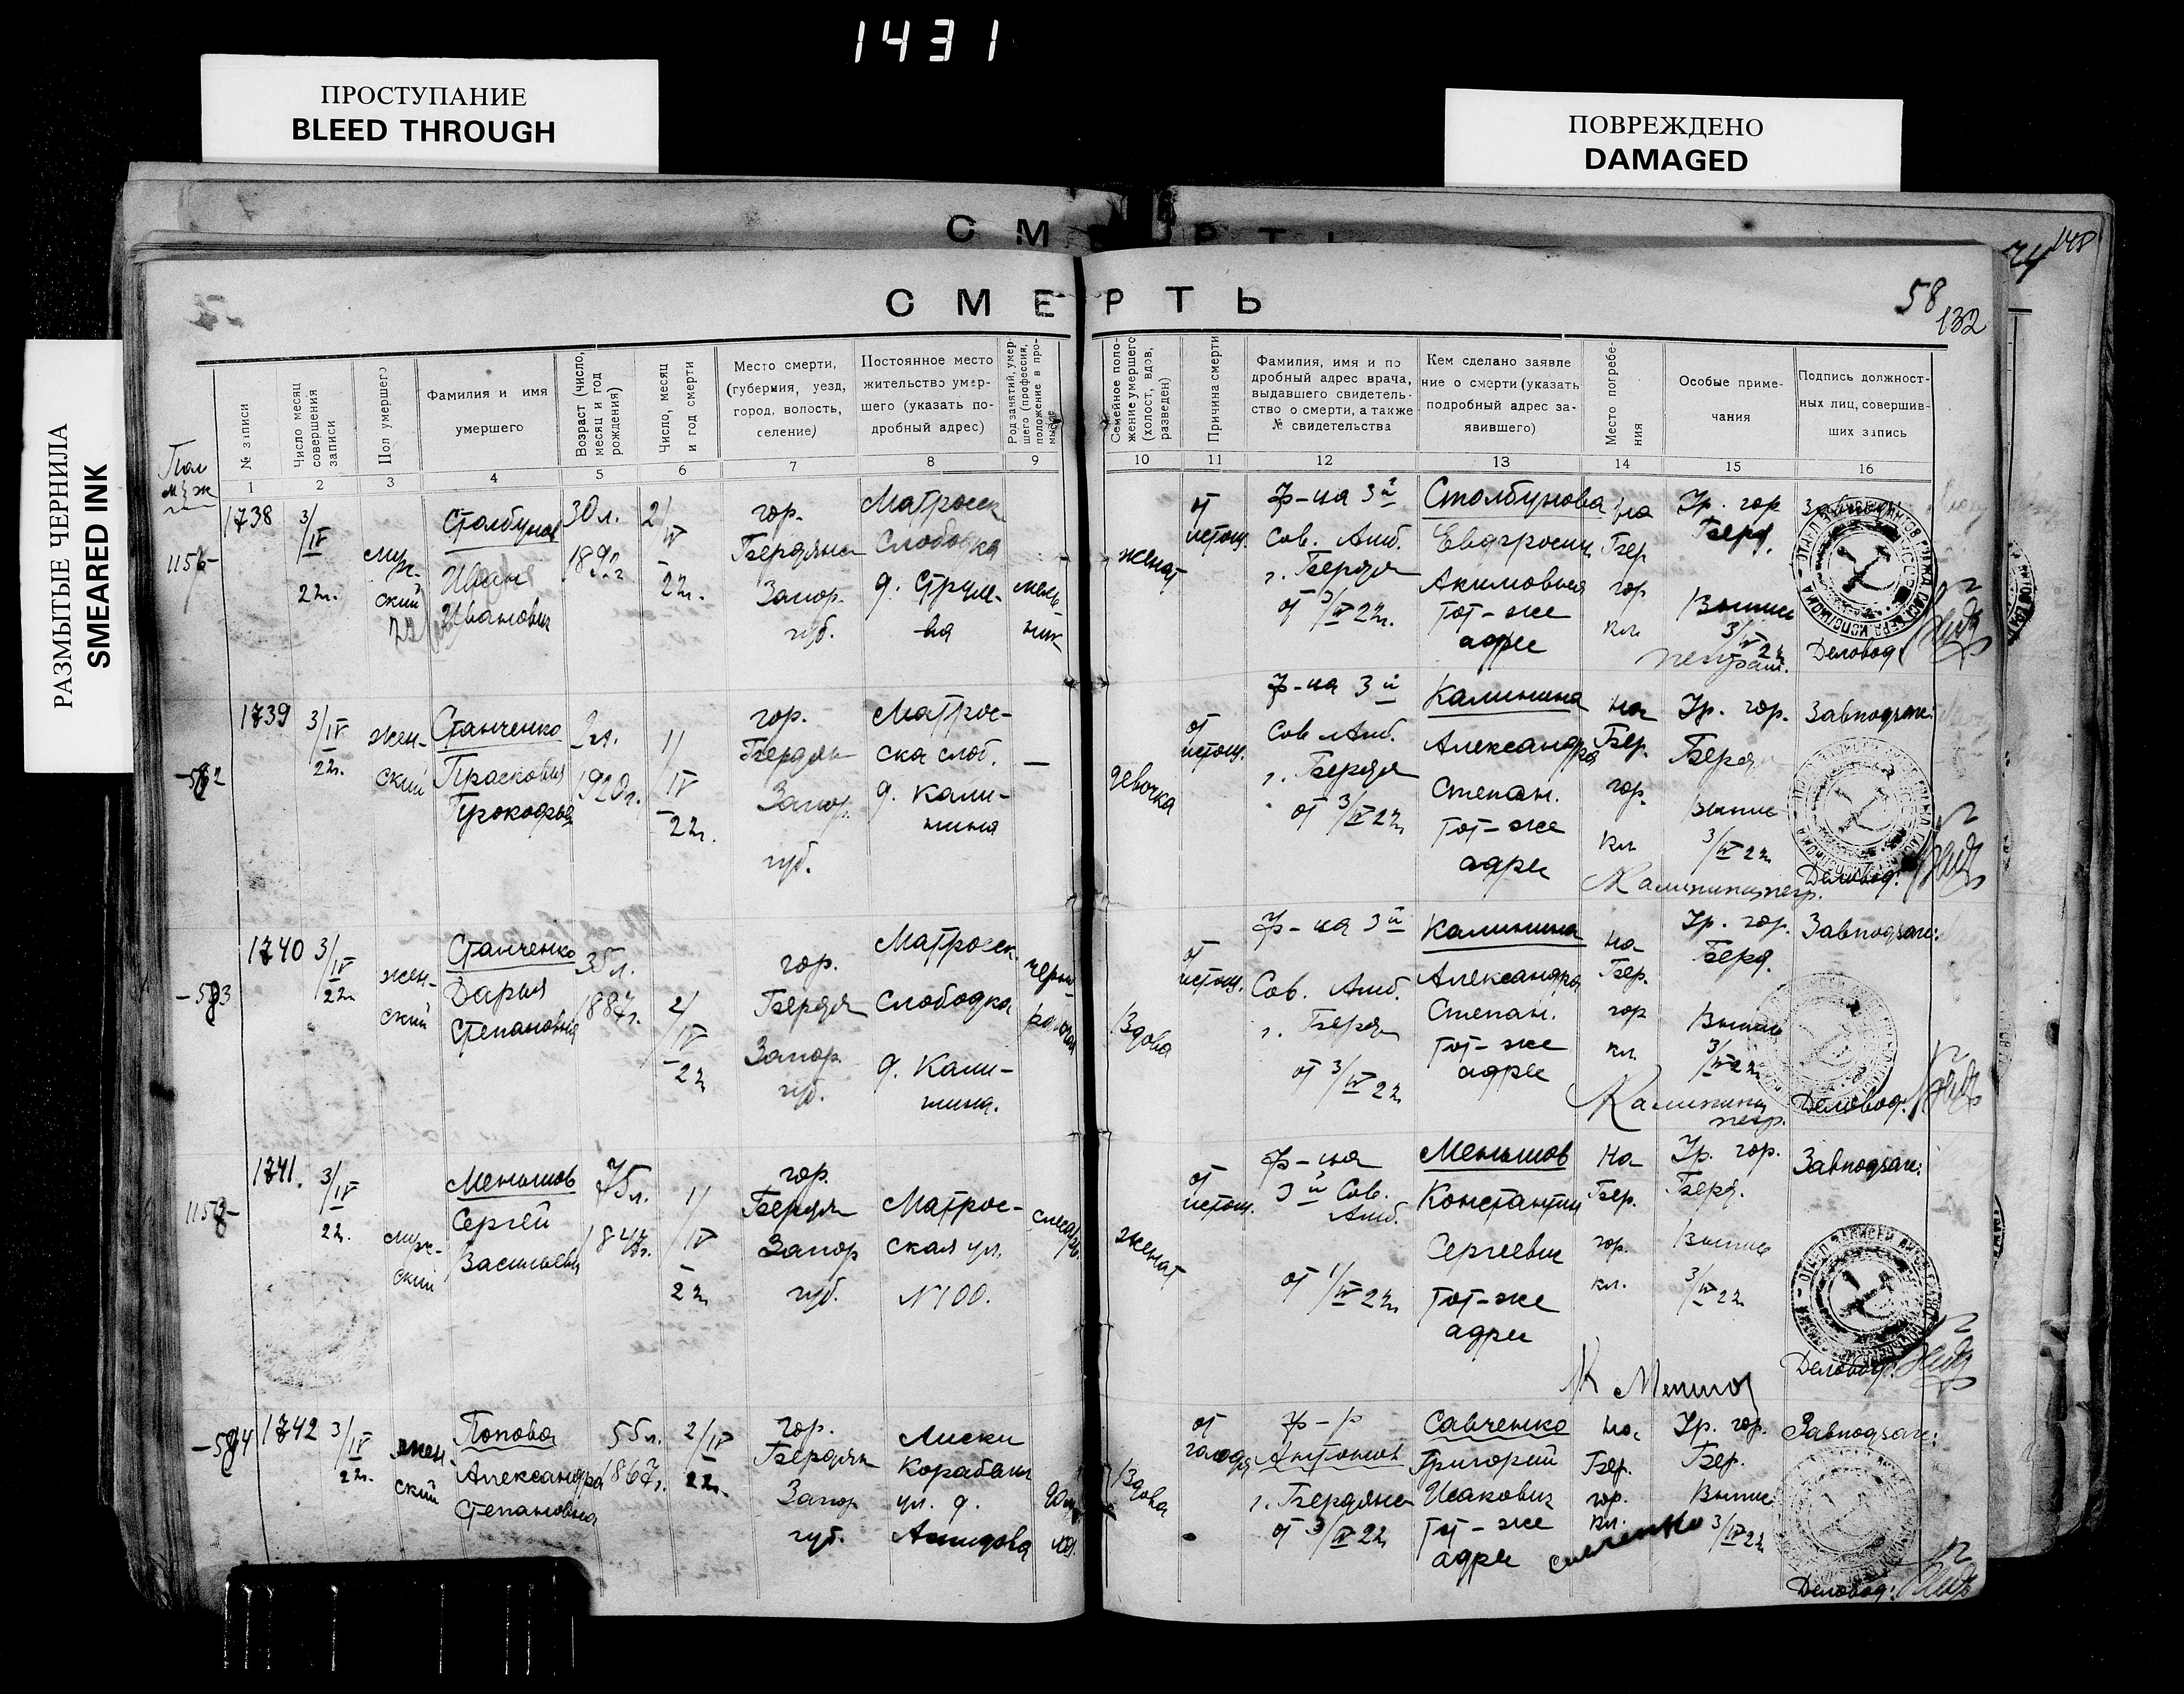 1431
ПРОСТУПАНИЕ
BLEED THROUGH
ПОВРЕЖДЕНО
DAMAGED
РАЗМЫТЫЕ ЧЕРНИЛА
SMEARED INK
СМЕРТЬ
58
132
№ записи
Число месяц
совершения
записи
Пол умершего
Фамилия и имя
умершего
Возраст (число,
месяц и год
рождения)
Число, месяц
и год смерти
Место смерти,
(губерния, уезд,
город, волость,
селение)
Постоянное место
жительство умер-
шего (указать по-
дробный адрес)
Род занятий, умер-
шего (профессия,
положение в про-
мысле
Семейное поло-
жение умершего
(холост, вдов,
разведен)
Причина смерти
Фамилия, имя и по
дробный адрес врача,
выдавшего свидетель-
ство о смерти, а также
№ свидетельства
Кем сделано заявле
ние о смерти (указать
подробный адрес за-
явившего)
Место погребе-
ния
Особые приме-
чания
Подпись должност-
ных лиц, совершив-
ших запись
1 2 3 4 5 6 7 8 9 10 11 12 13 14 15 16
1738
3/IV
22г.
муж-
ской
Столбунов
Иван
Иванович
30л.
2/IV
22г.
гор.
Бердянс
Запор.
губ.
Матросск
Слободка
женат
от
истощ.
ф-ца 3й
Сов. Амб.
г. Бердян
от 3/IV 22г.
Столбунова
Акимовна
тот-же
адрес
на
Бер
гор
кл.
Гр. гор
Берд.
Выпис
3/IV 22
Деловод.
1739
3/IV
22г.
жен-
ский
Станченко
Прасковья
2л.
1920г.
1/IV
22г.
гор.
Бердян
Запор.
губ.
Матрос-
ска слоб.
д. Кали-
нина
—
девочка
от
истощ.
ф-ца 3й
Сов. Амб.
г. Бердян
от 3/IV 22г.
Калинина
Александра
Степан.
тот-же
адрес
на
Бер.
гор.
кл.
Гр. гор.
Бердя
Выпис
3/IV 22г.
Завподзаг:
Деловод:
1740
3/IV
22г.
жен-
ский
Станченко
Дарья
Степановна
35л.
1887г.
2/IV
22г.
гор.
Бердян
Запор
губ.
Матросск.
Слободка
д. Кали-
нина.
Вдова
от
истощ.
ф-ца 3й
Сов. Амб.
г. Бердян
от 3/IV 22г.
Калинина
Александра
Степан.
тот-же
адрес
на
Бер.
гор
кл.
Гр. гор.
Берд.
Выпис
3/IV 22г.
Завподзаг:
Деловод:
1741.
3/IV
22г.
муж-
ский
Меньшов
Сергей
Васильев
75л.
1847г.
1/IV
22г.
гор.
Бердян
Запор
губ.
Матрос-
ская ул.
№100.
женат
от
истощ.
ф-ца
3й Сов.
Амб.
от 1/IV 22г.
Меньшов
Константин
Сергеевич
тот-же
адрес
На
Бер.
гор.
кл.
Гр. гор.
Берд.
Выпис
3/IV 22г.
Завподзаг:
Деловод:
-584
1742
3/IV
22г.
жен-
ский
Попова
Александра
Степановна
55л.
1867г.
2/IV
22г.
гор.
Бердян
Запор
губ.
Лиски
ул. д.
Вдова
от
голода
ф-р
г. Бердянс
от 3/IV 22г.
Савченко
Григорий
Исакович
тот-же
адрес
на
Бер.
гор.
кл.
Гр. гор.
Бер.
Выпис
3/IV 22г.
Завподзаг:
Деловод: